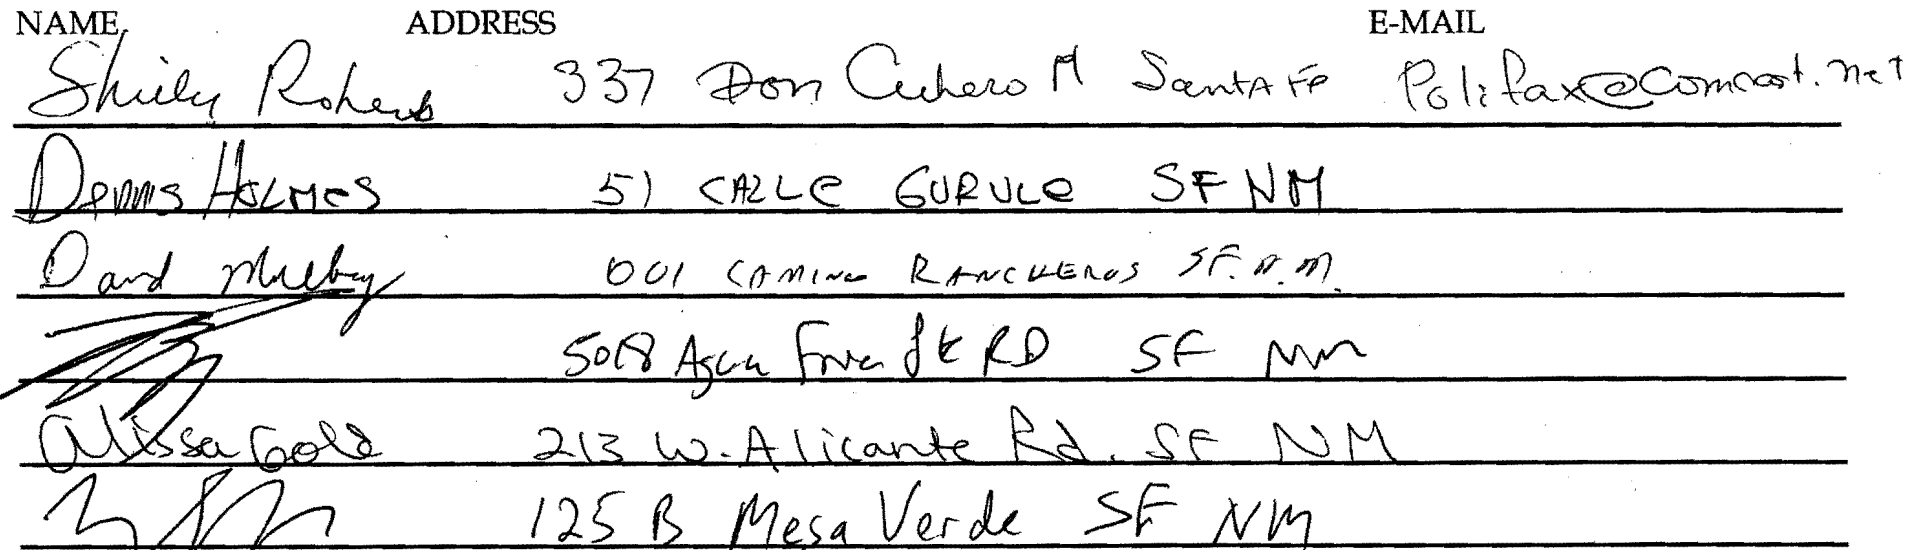 NAME ADDRESS E-MAIL
Shirley Roberts 337 Don Cubero Santa Fe Polifax@comcast.net
Dennis Holmes 51 CALLE GURULE SF NM
David 601 CAMINO RANCHEROS SF. N.M.
5018 Agua Fria RD SF NM
Alissa Gold 213 W. Alicante Rd. SF NM
125 B Mesa Verde SF NM